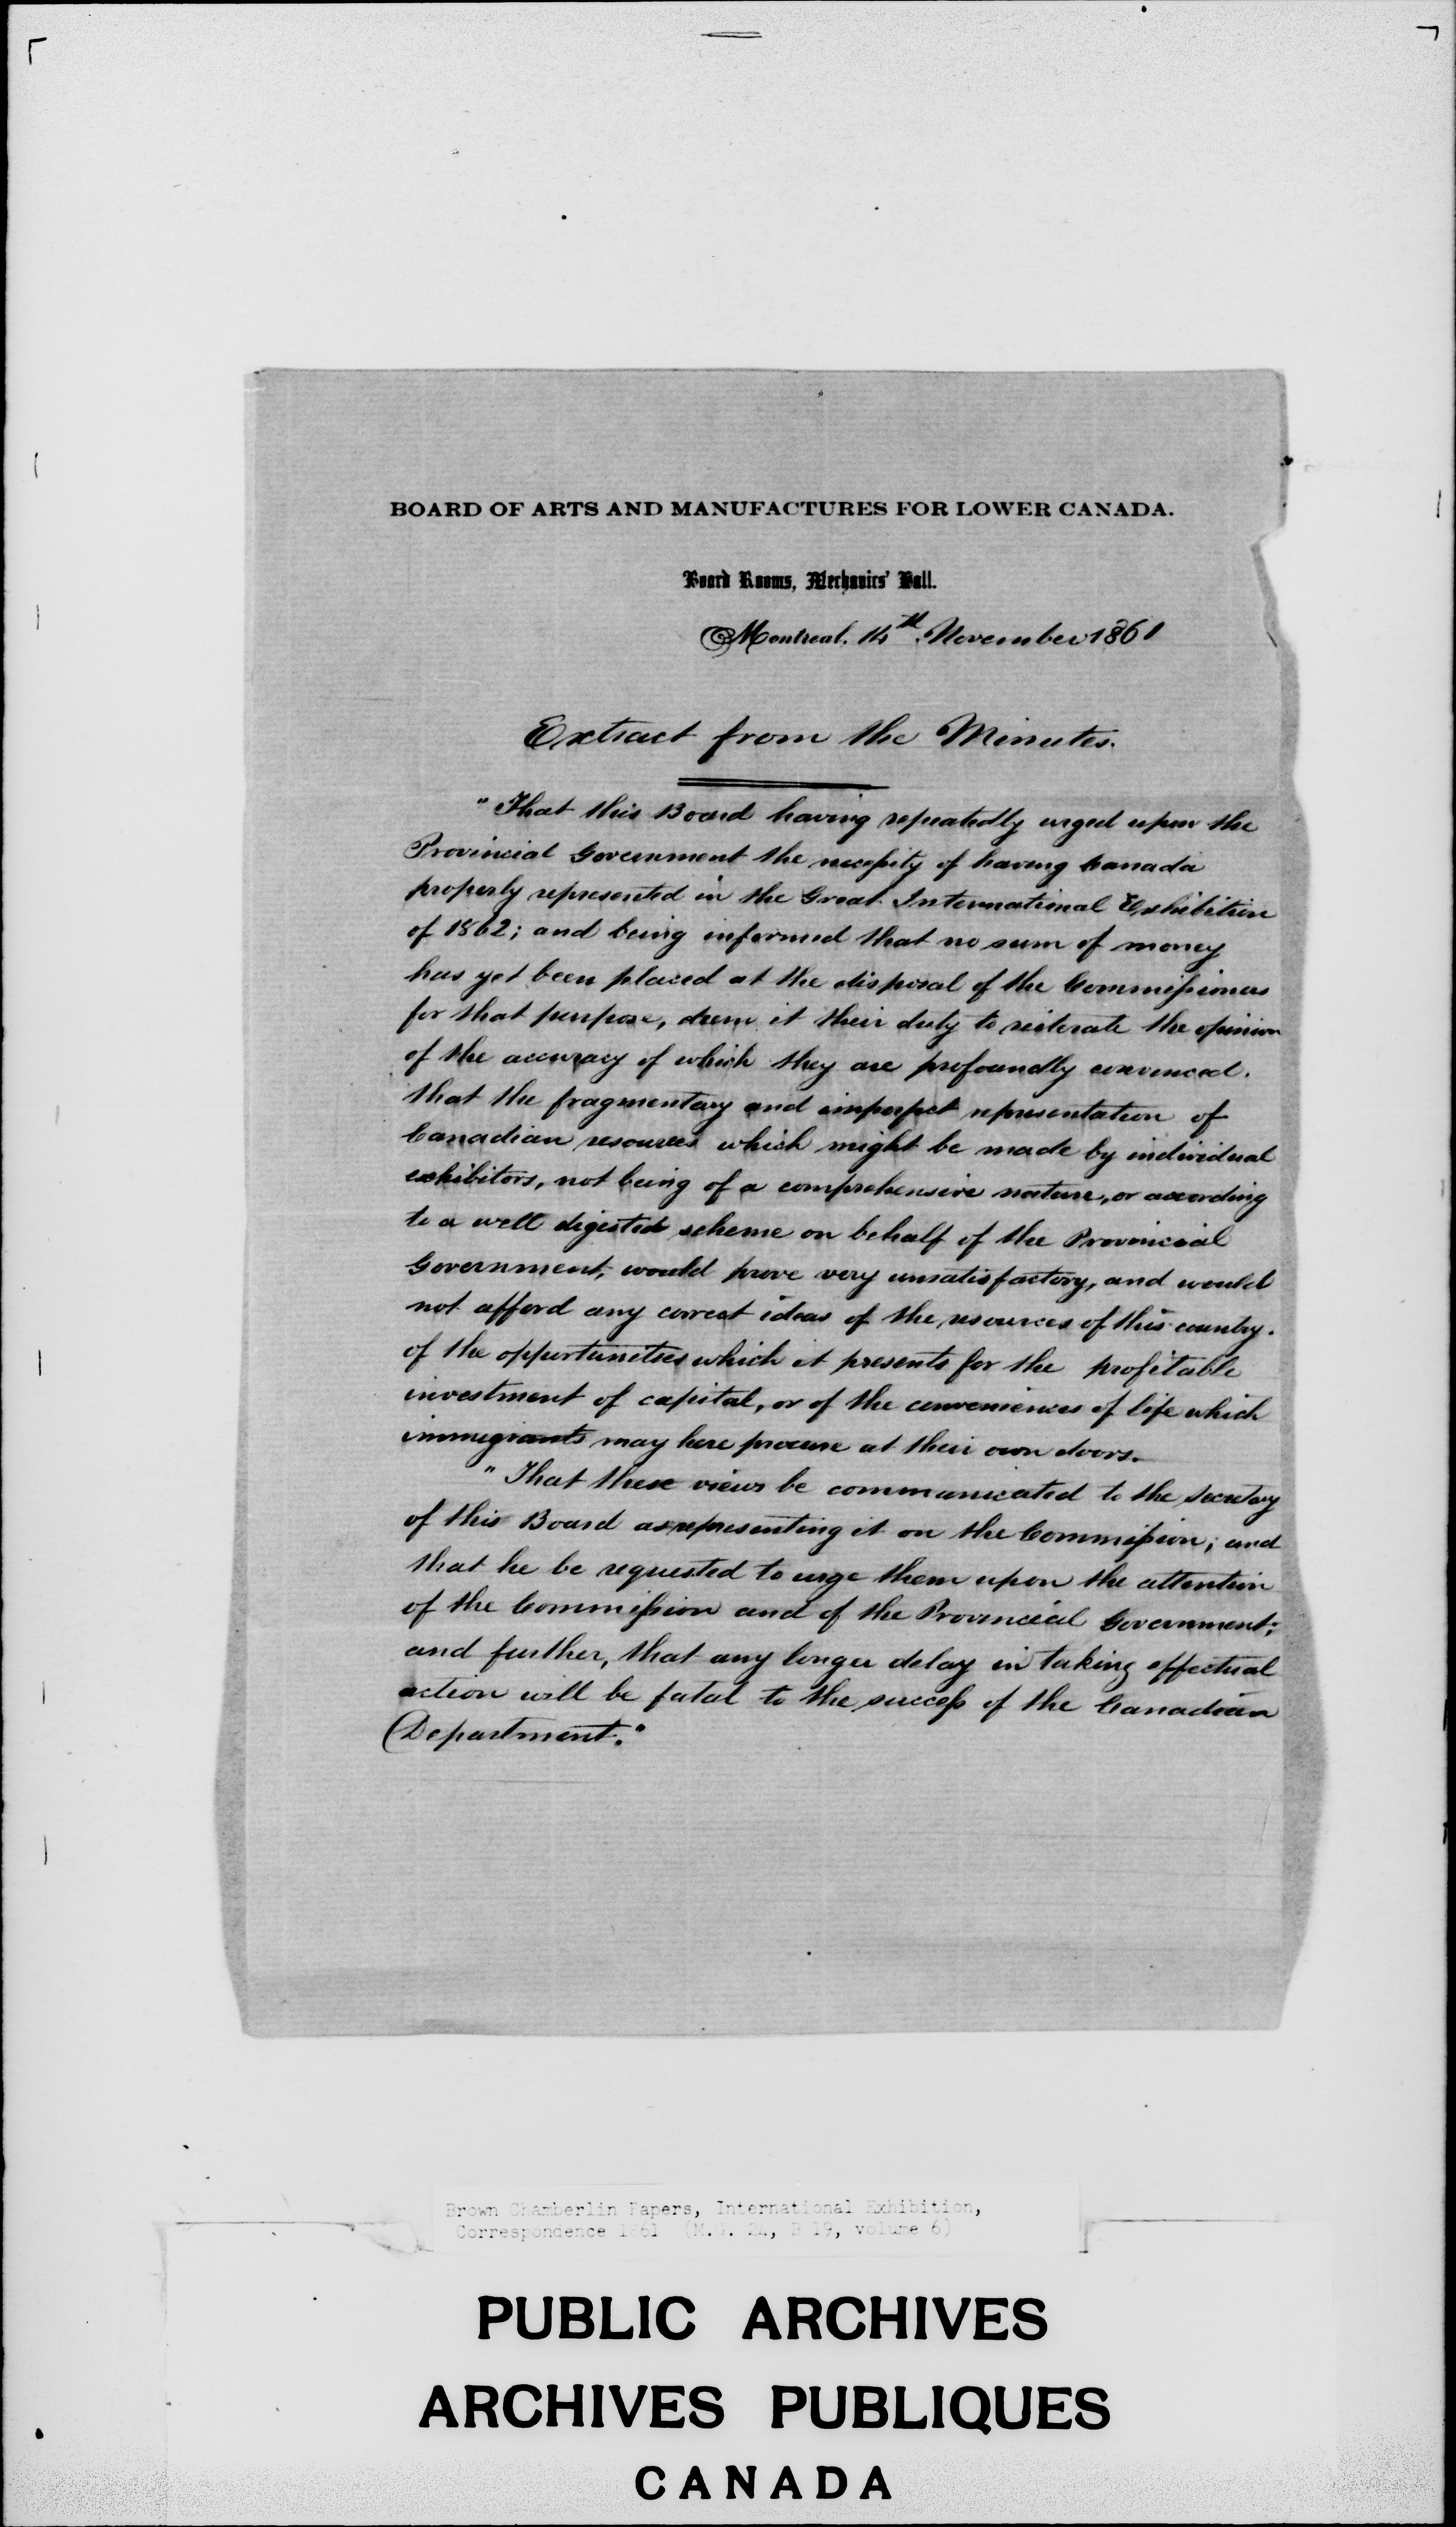 BOARD OF ARTS AND MANUFACTURES FOR LOWER CANADA.
Board Rooms, Mechanics' Hall.
Montreal. 14th. November 1861
Extract from the Minutes.
"That this Board having repeatedly urged upon the
Provincial Government the necessity of having Canada
properly represented in the Great International Exhibition
of 1862; and being informed that no sum of money
has yet been placed at the disposal of the Commissioners
for that purpose, deem it their duty to reiterate the opinion
of the accuracy of which they are profoundly convinced.
that the fragmentary and imperfect representation of
Canadian resources which might be made by individual
exhibitors, not being of a comprehensive nature, or according
to a well digested scheme on behalf of the Provincial
Government, would prove very unsatisfactory, and would
not afford any correct ideas of the resources of this country.
of the opportunities which it presents for the profitable
investment of capital, or of the conveniences of life which
immigrants may here procure at their own doors.
"That these views be communicated to the Secretary
of this Board as representing it on the Commission; and
that he be requested to urge them upon the attention
of the Commission and of the Provincial Government;
and further, that any longer delay in taking effectual
action will be fatal to the success of the Canadian
Department."
Brown Chamberlin Papers, International Exhibition,
Correspondence 1861 (M.G. 24, B 19, volume 6)
PUBLIC ARCHIVES
ARCHIVES PUBLIQUES
CANADA